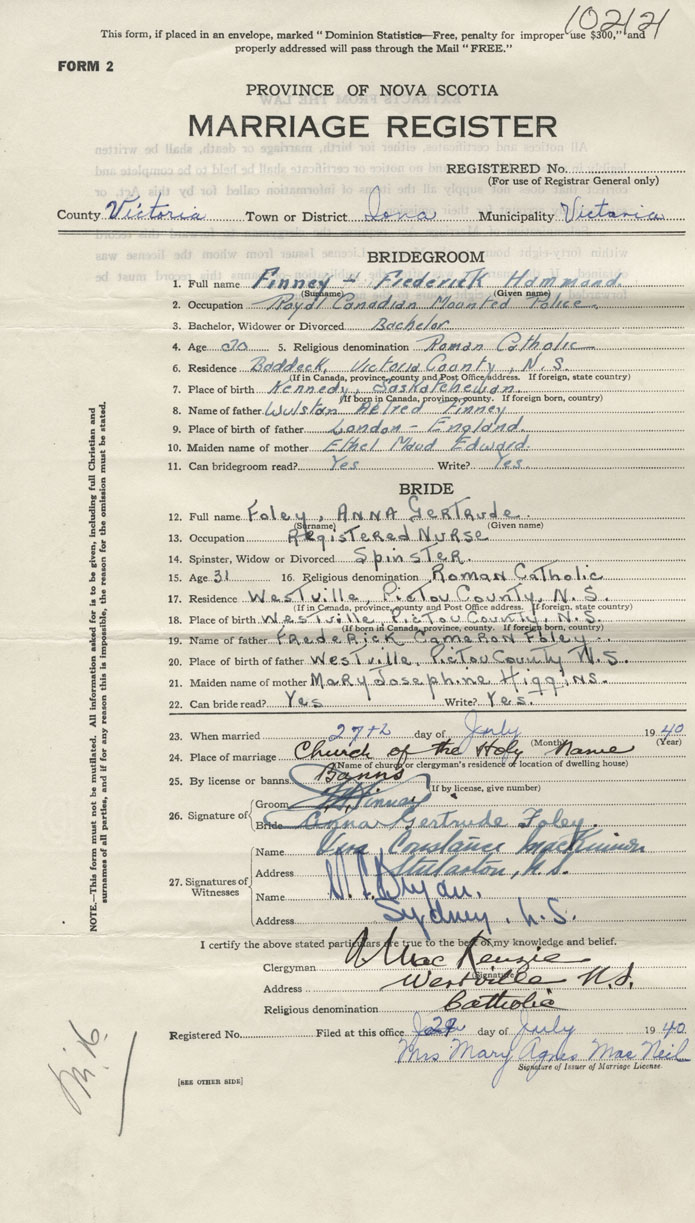 This form, if placed in an envelope, marked "Dominion Statistics—Free, penalty for improper use $300," and
properly addressed will pass through the Mail "FREE."
FORM 2
PROVINCE OF NOVA SCOTIA
MARRIAGE REGISTER
REGISTERED No.
(For use of Registrar General only)
County Victoria Town or District Iona Municipality Victoria
BRIDEGROOM
1. Full name Finney - Frederick Hammond.
(Surname) (Given name)
2. Occupation Royal Canadian Mounted Police
3. Bachelor, Widower or Divorced Bachelor
4. Age 30 5. Religious denomination Roman Catholic
6. Residence Baddeck, Victoria County, N.S.
(If in Canada, province, county and Post Office address. If foreign, state country)
7. Place of birth Kennedy, Saskatchewan.
(If born in Canada, province, county. If foreign born, country)
8. Name of father Wulstan Aelred Finney
9. Place of birth of father London - England.
10. Maiden name of mother Ethel Maud Edward.
11. Can bridegroom read? Yes Write? Yes.
BRIDE
12. Full name Foley, Anna Gertrude.
(Surname) (Given name)
13. Occupation Registered Nurse
14. Spinster, Widow or Divorced Spinster.
15. Age 31 16. Religious denomination Roman Catholic
17. Residence Westville, Pictou County, N.S.
(If in Canada, province, county and Post Office address. If foreign, state country)
18. Place of birth Westville, Pictou County, N.S.
(If born in Canada, province, county. If foreign born, country)
19. Name of father Frederick Cameron Foley.
20. Place of birth of father Westville, Pictou County N.S.
21. Maiden name of mother Mary Josephine Higgins.
22. Can bride read? Yes Write? Yes.
23. When married 27th day of July 1940
(Month) (Year)
24. Place of marriage Church of the Holy Name
(Name of church or clergyman's residence or location of dwelling house)
25. By license or banns Banns
(If by license, give number)
26. Signature of
Groom Finney
Bride Anna Gertrude Foley.
27. Signatures of Witnesses
Name Constance MacKinnon
Address Stellarton, N.S.
Name Bryan,
Address Sydney, N.S.
I certify the above stated particulars are true to the best of my knowledge and belief.
Clergyman MacKenzie
(Signature)
Address Westville N.S.
Religious denomination Catholic
Registered No. Filed at this office 29 day of July 1940.
Mrs Mary Agnes MacNeil
Signature of Issuer of Marriage License
[SEE OTHER SIDE]
NOTE.—This form must not be mutilated. All information asked for is to be given, including full Christian and
surnames of all parties, and if for any reason this is impossible, the reason for the omission must be stated.